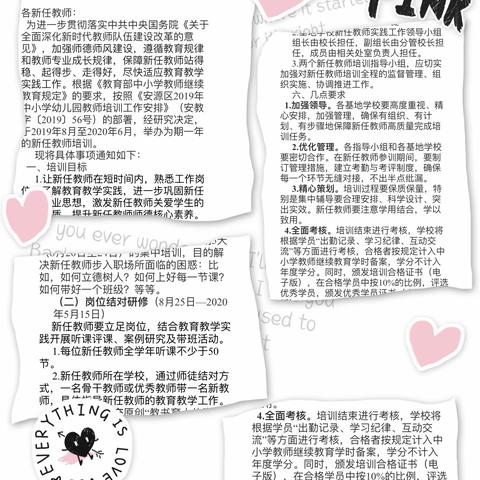 各新任教师：
为进一步贯彻落实中共中央国务院《关于
全面深化新时代教师队伍建设改革的意
见》，加强师德师风建设，遵循教育规律
和教师专业成长规律，保障新任教师站得
稳、起得步、走得好，尽快适应教育教学
实践工作。根据《教育部中小学教师继续
教育规定》的要求，按照《安源区2019年
中小学幼儿园教师培训工作安排》（安教
字〔2019〕56号）的部署，经研究决定，
于2019年8月至2020年6月，举办为期一年
的新任教师培训。
现将具体事项通知如下：
一、培训目标
1.让新任教师在短时间内，熟悉工作岗
了解教育教学实践，进一步巩固新任
业思想，激发新任教师关爱学生的
提升新任教师师德核心素养。
的集中培训，目的解
决新任教师步入职场所面临的困惑：比
如，如何立德树人？如何上好每一节课？
如何带好一个班级？等等。
（二）岗位结对研修（8月25日—2020
年5月15日）
新任教师要立足岗位，结合教育教学实
践开展听课评课、案例研究及带班活动。
1.每位新任教师全学年听课不少于50
节。
2.新任教师所在学校，通过师徒结对方
式，一名骨干教师或优秀教师带一名新教
师，具体指导新任教师的教育教学工作。
EVERYTHING IS LOVE
PINK
学校新任教师实践工作领导小组
组长由校长担任，副组长由分管校长担
任，成员由相关处室负责人担任。
3.两个新任教师培训指导小组，应切实
加强对新任教师培训全程的监督管理、组
织实施、协调推进工作。
六、几点要求
1.加强领导。各基地学校要高度重视、精
心安排，加强管理，确保有组织、有计
划、有步骤地保障新任教师高质量完成培
训任务。
2.优化管理。各指导小组和各基地学校
要密切合作。在新任教师参训期间，要制
订管理措施，建立考勤与考评制度，确保
每一个环节无缝对接，不出半点纰漏。
3.精心策划。培训过程要保质保量，特
别是集中辅导要合理安排、科学设计、突
出实效。新任教师要注意学用结合、学以
致用。
4.全面考核。培训结束进行考核，学校将
根据学员“出勤记录、学习纪律、互动交
流”等方面进行考核，合格者按规定计入中
小学教师继续教育学时备案，学分不计入
年度学分。同时，颁发培训合格证书（电
子版），在合格学员中按10%的比例，评选
优秀学员，颁发优秀学员证书
4.全面考核。培训结束进行考核，学校将
根据学员“出勤记录、学习纪律、互动交
流”等方面进行考核，合格者按规定计入中
小学教师继续教育学时备案，学分不计入
年度学分。同时，颁发培训合格证书（电
子版），在合格学员中按10%的比例，评选